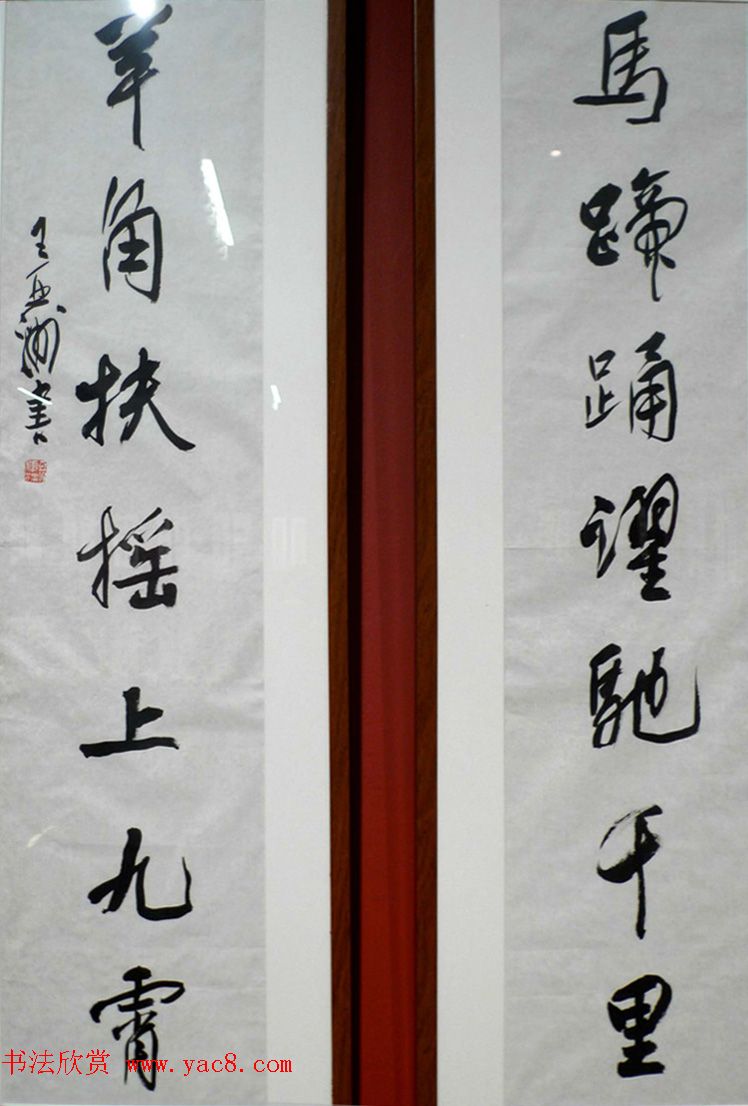 馬蹄踊躍馳千里
羊角扶摇上九霄
王亚洲书
书法欣赏 www.yac8.com